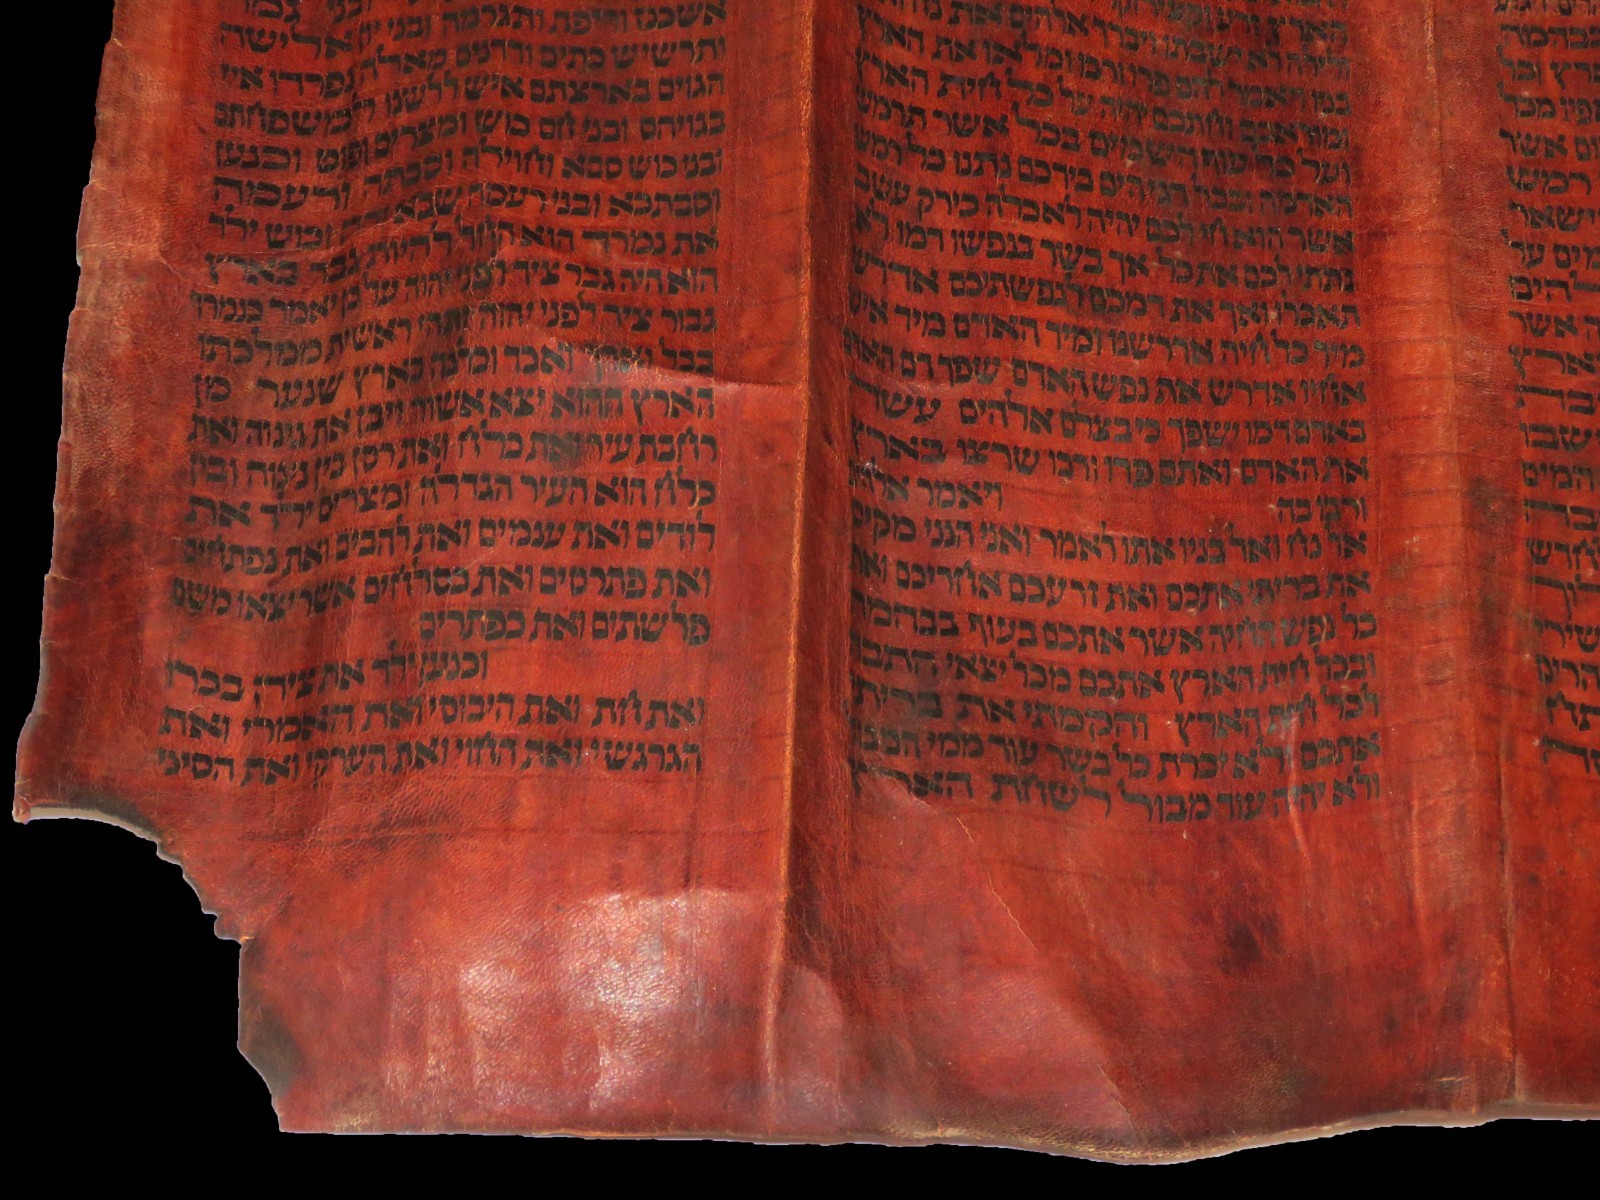 בבהמה
רץ וכל
מכל
אשר
רמש
מים על
אשר
ולילה לא ישבתו ויברך אלהים את נח ואת
בניו ויאמר להם פרו ורבו ומלאו את הארץ
ומוראכם וחתכם יהיה על כל חית הארץ
ועל כל עוף השמים בכל אשר תרמש
האדמה ובכל דגי הים בידכם נתנו כל רמש
אשר הוא חי לכם יהיה לאכלה כירק עשב
נתתי לכם את כל אך בשר בנפשו דמו לא
תאכלו ואך את דמכם לנפשתיכם אדרש
מיד כל חיה אדרשנו ומיד האדם מיד איש
אחיו אדרש את נפש האדם שפך דם האדם
באדם דמו ישפך כי בצלם אלהים עשה
את האדם ואתם פרו ורבו שרצו בארץ
ורבו בה ויאמר אלהים
אל נח ואל בניו אתו לאמר ואני הנני מקים
את בריתי אתכם ואת זרעכם אחריכם ואת
כל נפש החיה אשר אתכם בעוף בבהמה
ובכל חית הארץ אתכם מכל יצאי התבה
לכל חית הארץ והקמתי את בריתי
אתכם ולא יכרת כל בשר עוד ממי המבול
ולא יהיה עוד מבול לשחת הארץ
אשכנז וריפת ותגרמה ובני יון אלישה
ותרשיש כתים ודדנים מאלה נפרדו איי
הגוים בארצתם איש ללשנו למשפחתם
בגויהם ובני חם כוש ומצרים ופוט וכנען
ובני כוש סבא וחוילה וסבתה ורעמה
וסבתכא ובני רעמה שבא ודדן וכוש ילד
את נמרד הוא החל להיות גבר בארץ
הוא היה גבר ציד לפני יהוה על כן יאמר כנמרד
גבור ציד לפני יהוה ותהי ראשית ממלכתו
בבל וארך ואכד וכלנה בארץ שנער מן
הארץ ההוא יצא אשור ויבן את נינוה ואת
רחבת עיר ואת כלח ואת רסן בין נינוה ובין
כלח הוא העיר הגדלה ומצרים ילד את
לודים ואת ענמים ואת להבים ואת נפתחים
ואת פתרסים ואת כסלחים אשר יצאו משם
פלשתים ואת כפתרים
וכנען ילד את צידן בכרו
ואת חת ואת היבוסי ואת האמרי ואת
הגרגשי ואת החוי ואת הערקי ואת הסיני